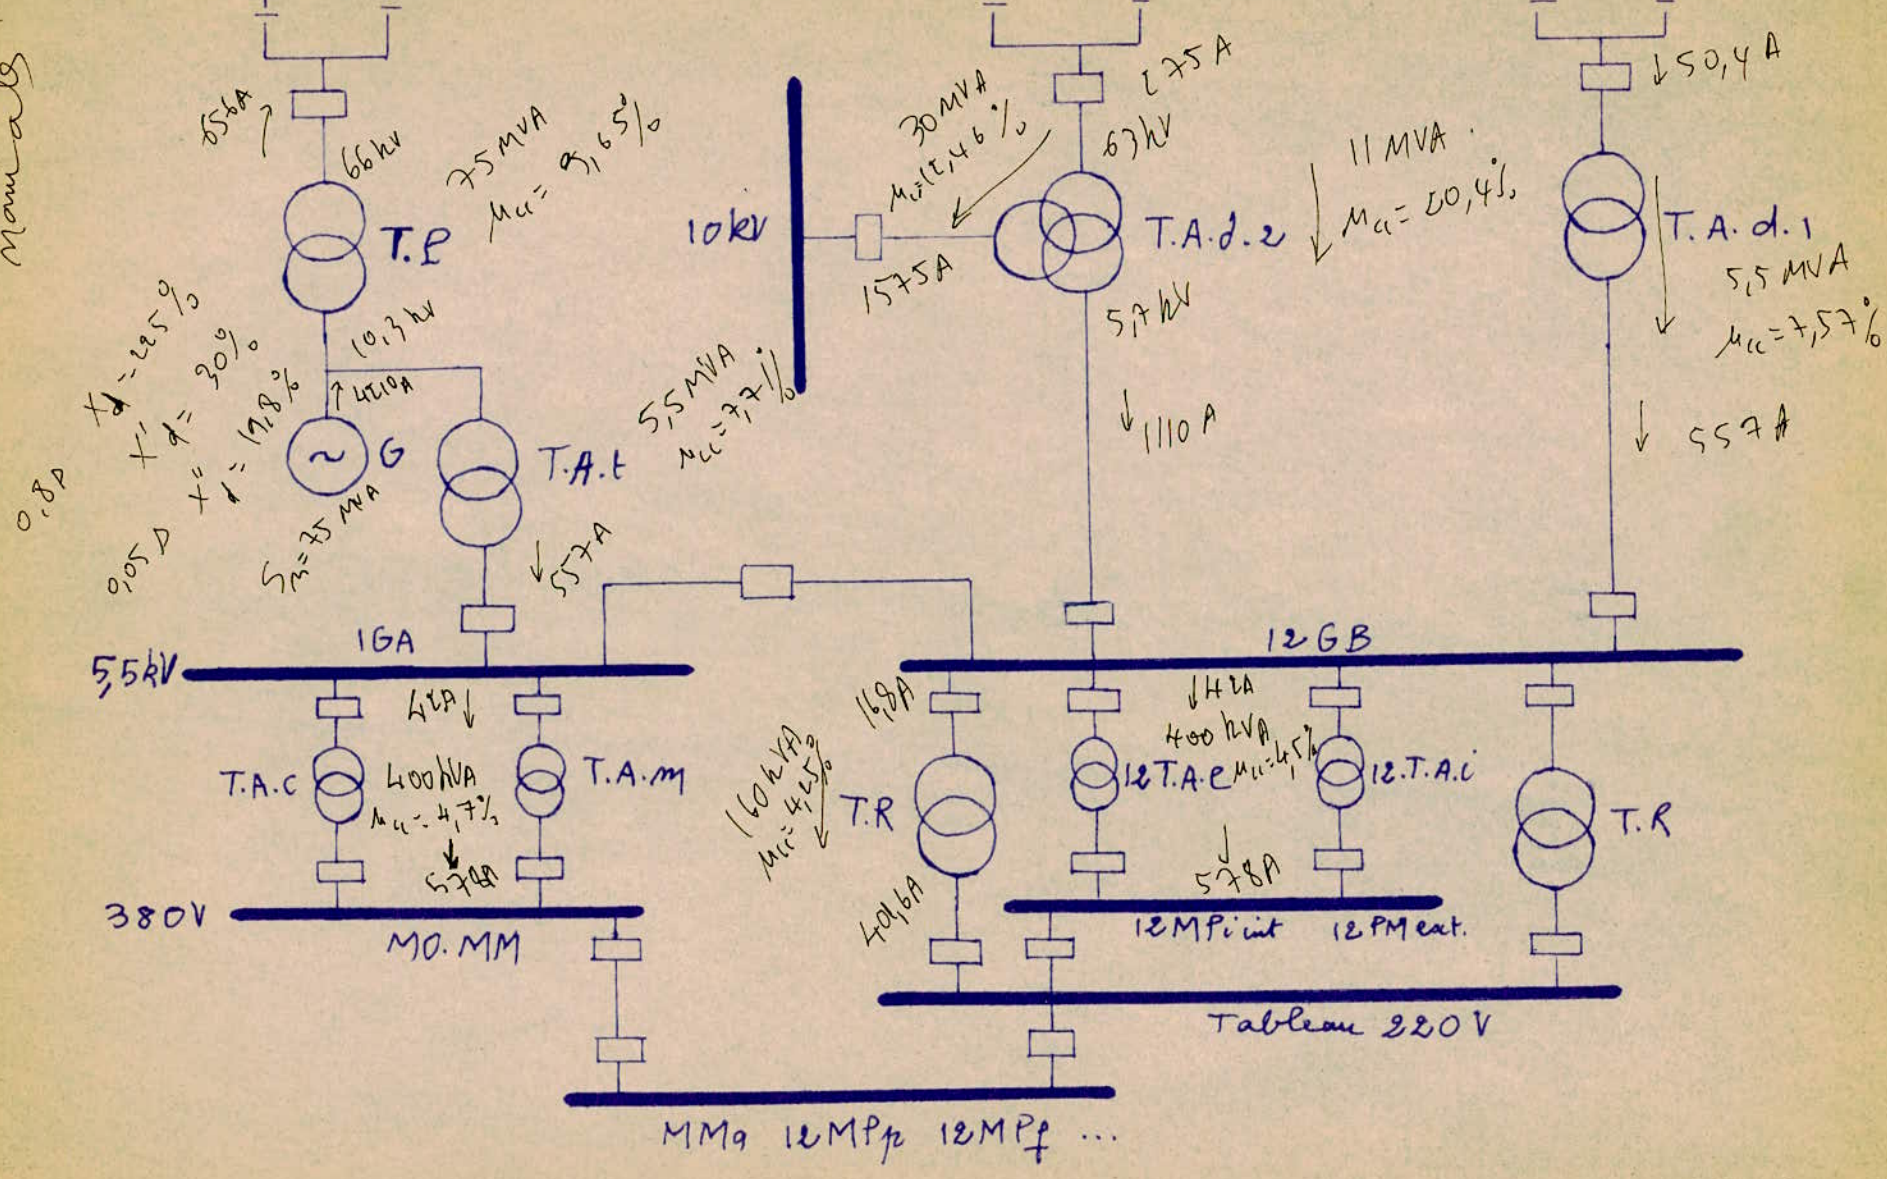 656A
66kV
75 MVA
µcc = 9,65%
T.P
10,3 kV
X d = 225%
X' d = 30%
X" d = 19,8%
0,8 D
0,05 D
4210A
G
Sn=75 MVA
T.A.t
5,5 MVA
µcc=7,7%
557A
10kV
1575A
30 MVA
µcc=12,46%
275 A
63kV
T.A.d.2
11 MVA
µcc = 20,4%
5,7kV
1110 A
50,4 A
T.A.d.1
5,5 MVA
µcc=7,57%
557 A
1GA
5,5kV
12GB
42A
T.A.C
400kVA
µcc = 4,7%
T.A.m
578A
380V
MO.MM
16,8A
160 kVA
µcc=4,25%
T.R
401,6A
42A
400 kVA
µcc=4,5%
12T.A.e
12.T.A.i
578A
T.R
12MPi int 12PM ext.
Tableau 220V
MMa 12MPp 12MPf ...